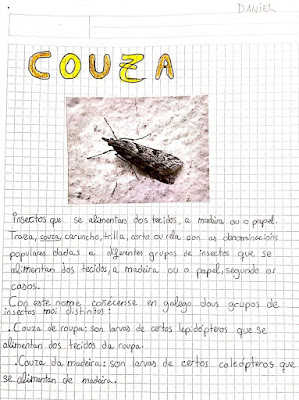 DANIEL
COUZA
Insectos que se alimentan dos tecidos, a madeira ou o papel.
Traza, couza, caruncho, trilla, corto ou rela son as denominacións
populares dadas a diferentes grupos de insectos que se
alimentan dos tecidos, a madeira ou o papel, segundo os
casos.
Con este nome coñécense en galego dous grupos de
insectos moi distintos:
.Couza de roupa: son larvas de certos lepidópteros que se
alimentan dos tecidos da roupa.
.Couza da madeira: son larvas de certos coleópteros que
se alimentan de madeira.